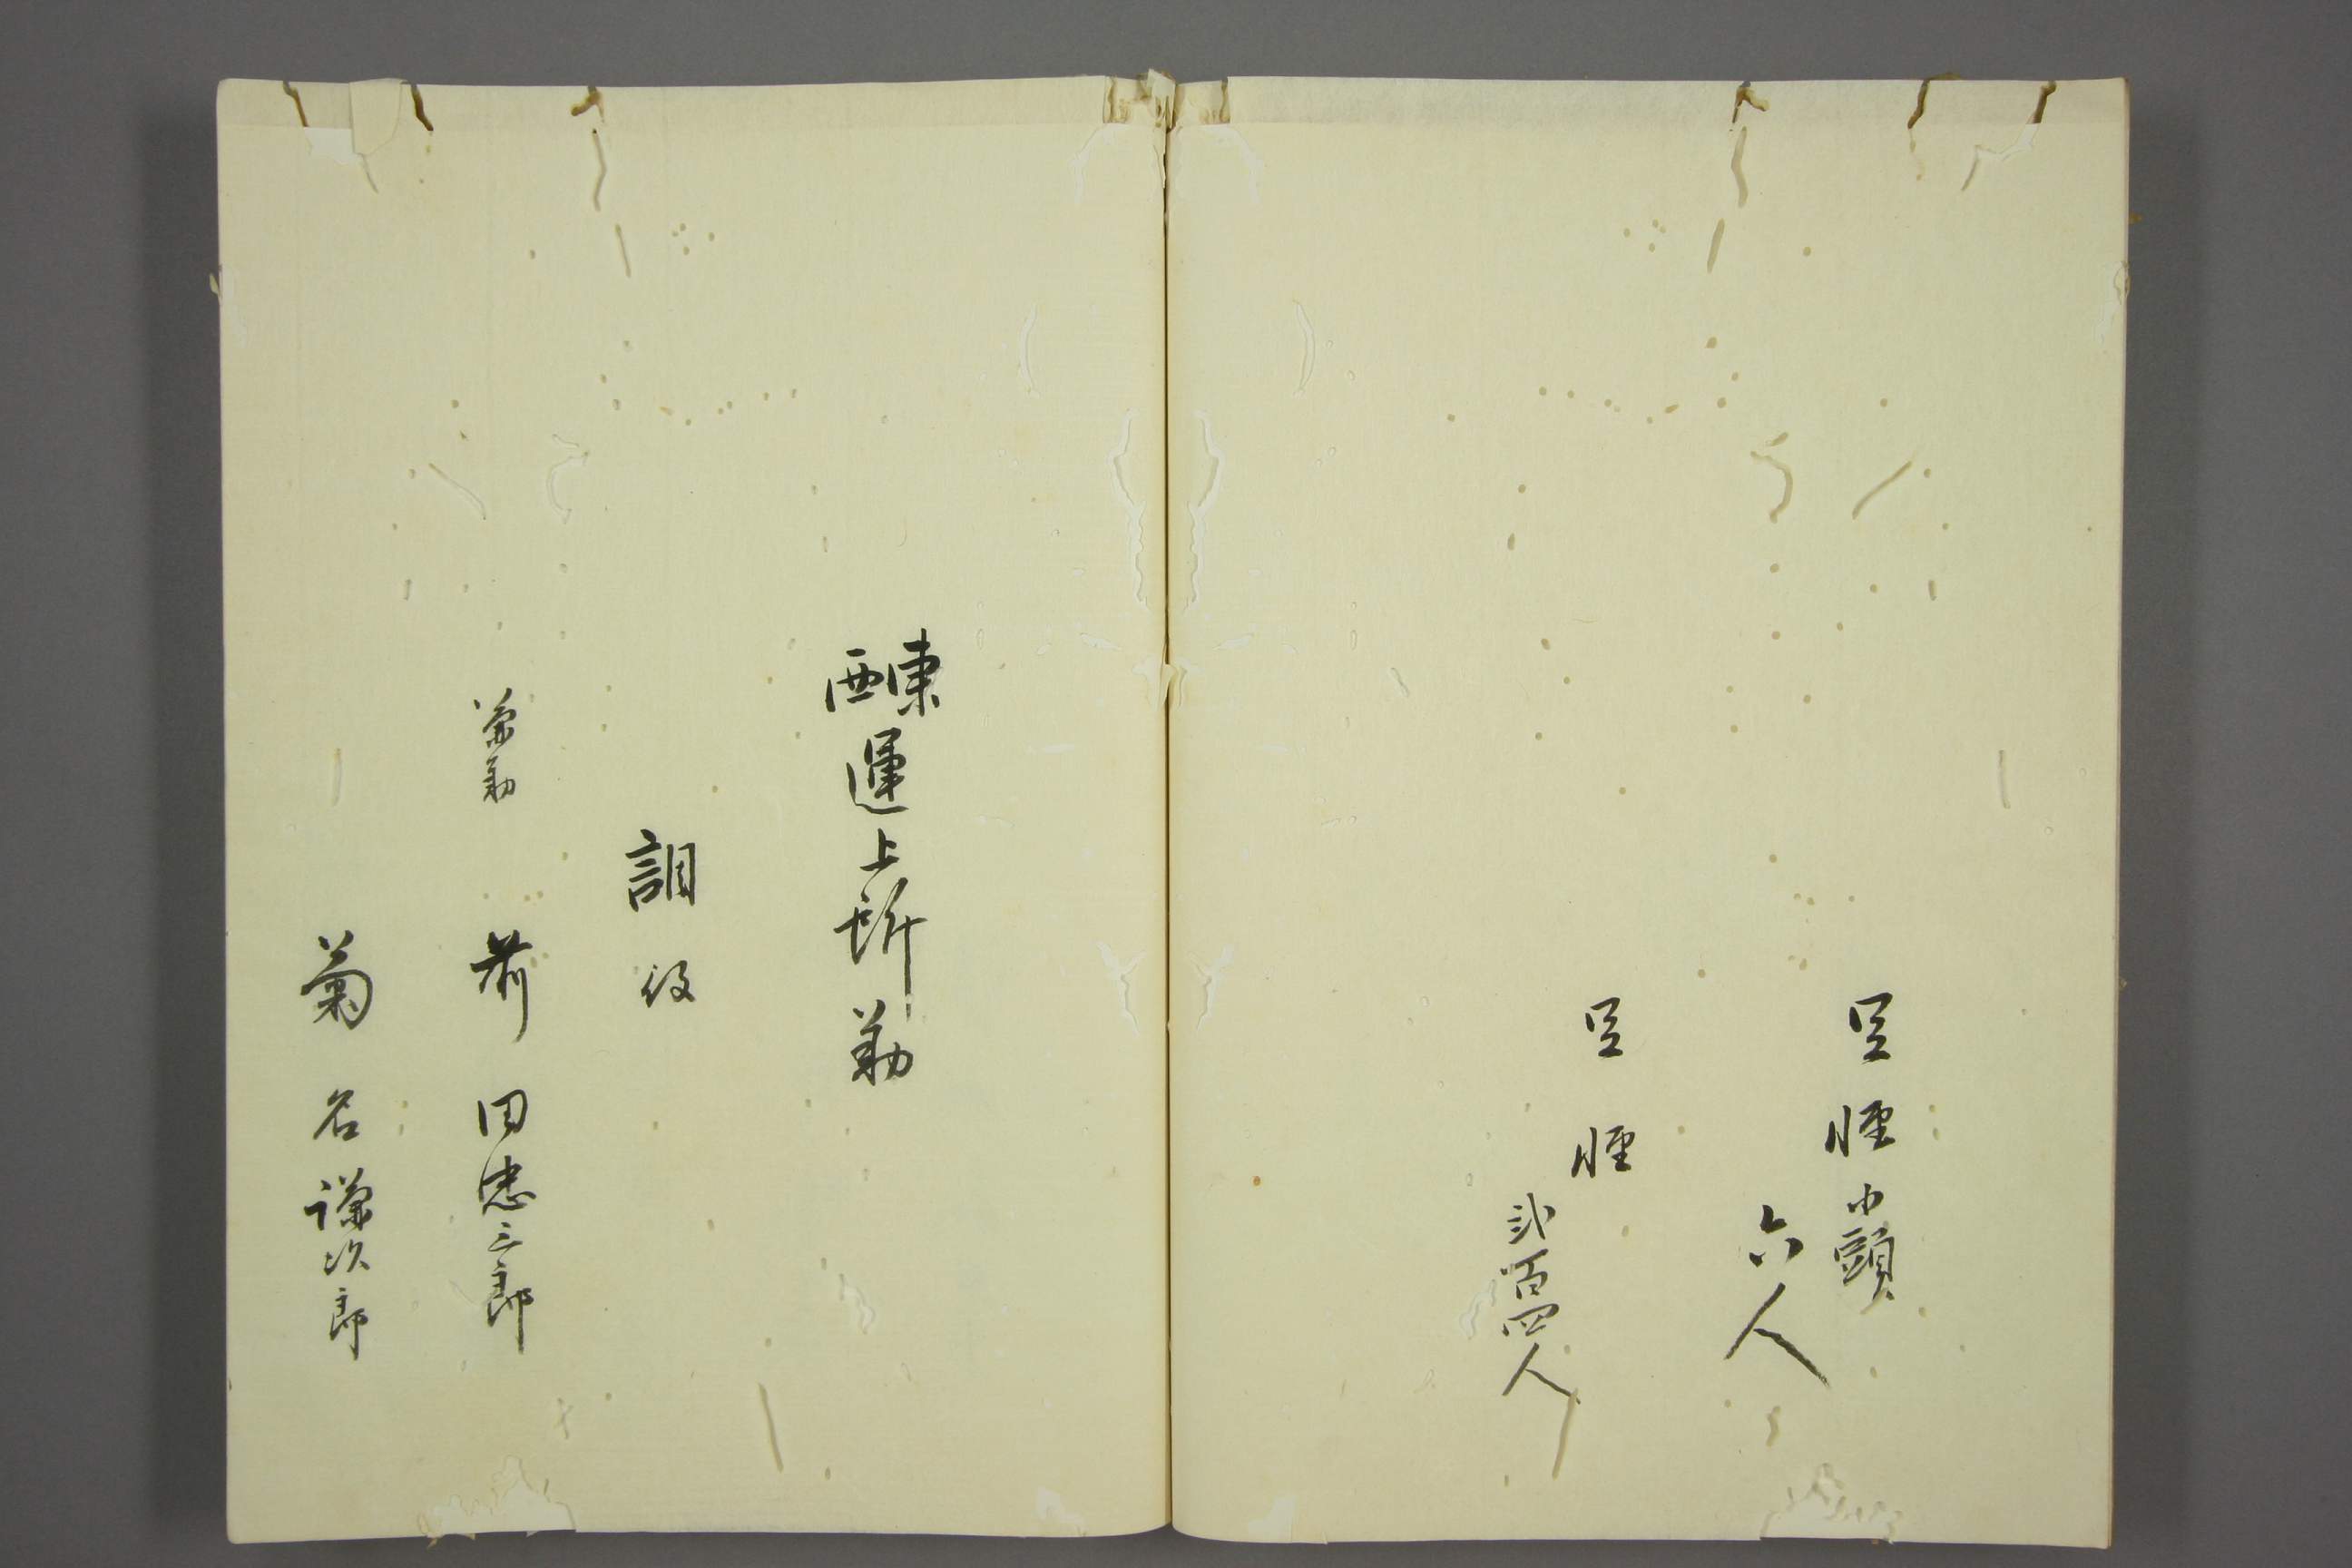 足軽小頭
六人
足軽
弐百四人
東西運上所勤
調役
兼勤
前田忠三郎
菊名謙次郎